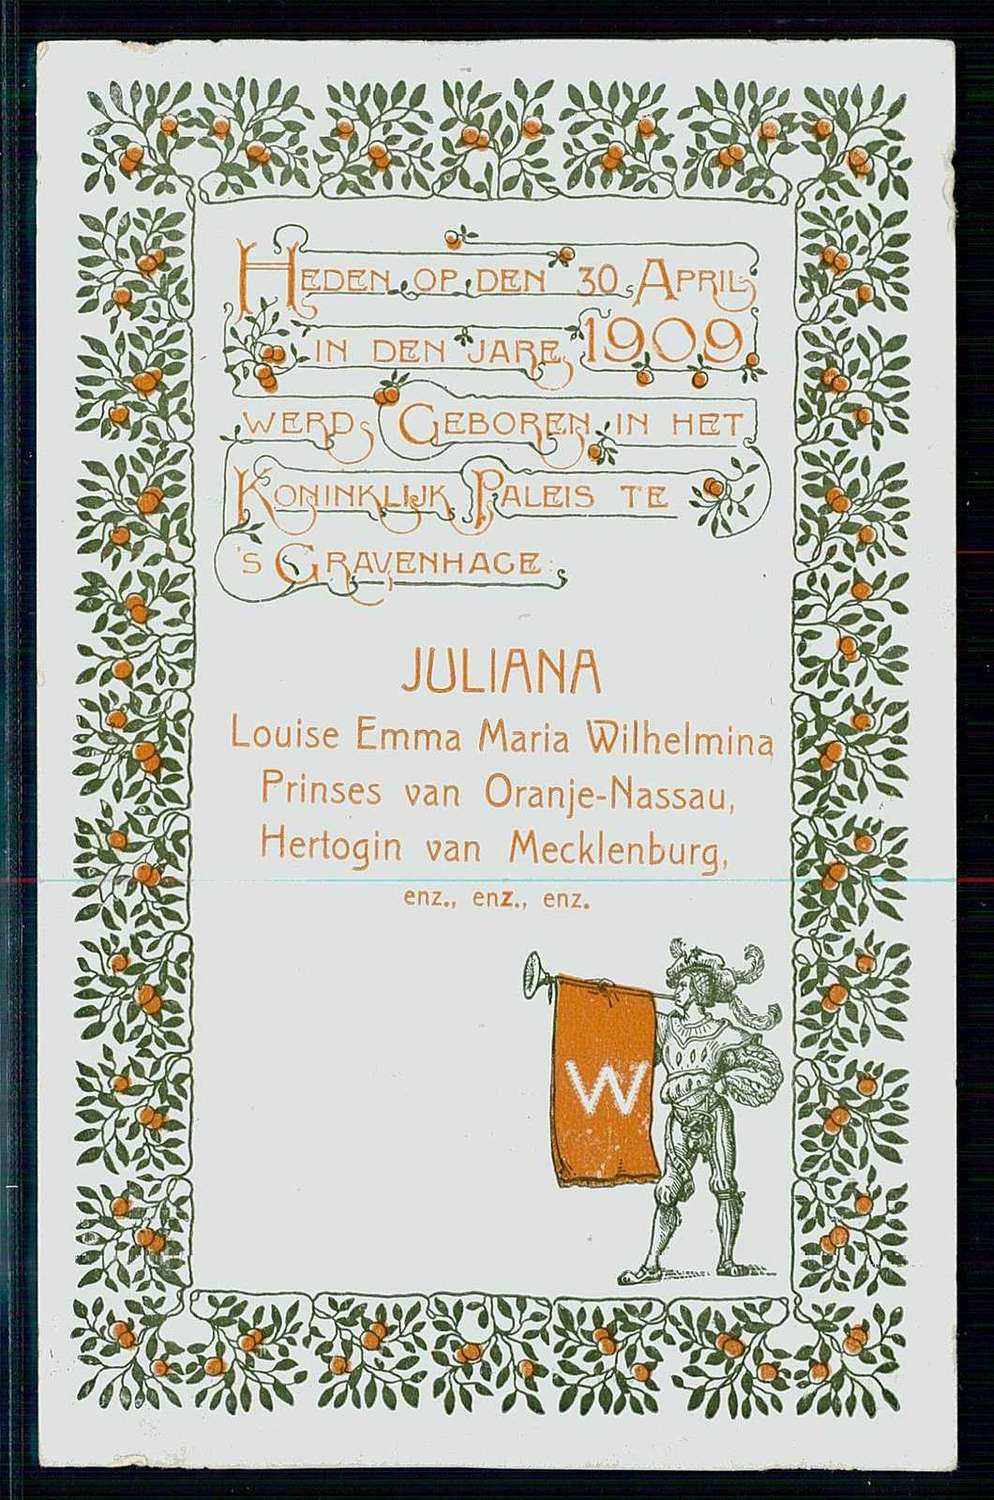 HEDEN OP DEN 30 APRIL
IN DEN JARE 1909
WERD GEBOREN IN HET
KONINKLIJK PALEIS TE
'S GRAVENHAGE
JULIANA
Louise Emma Maria Wilhelmina
Prinses van Oranje-Nassau,
Hertogin van Mecklenburg,
enz., enz., enz.
W